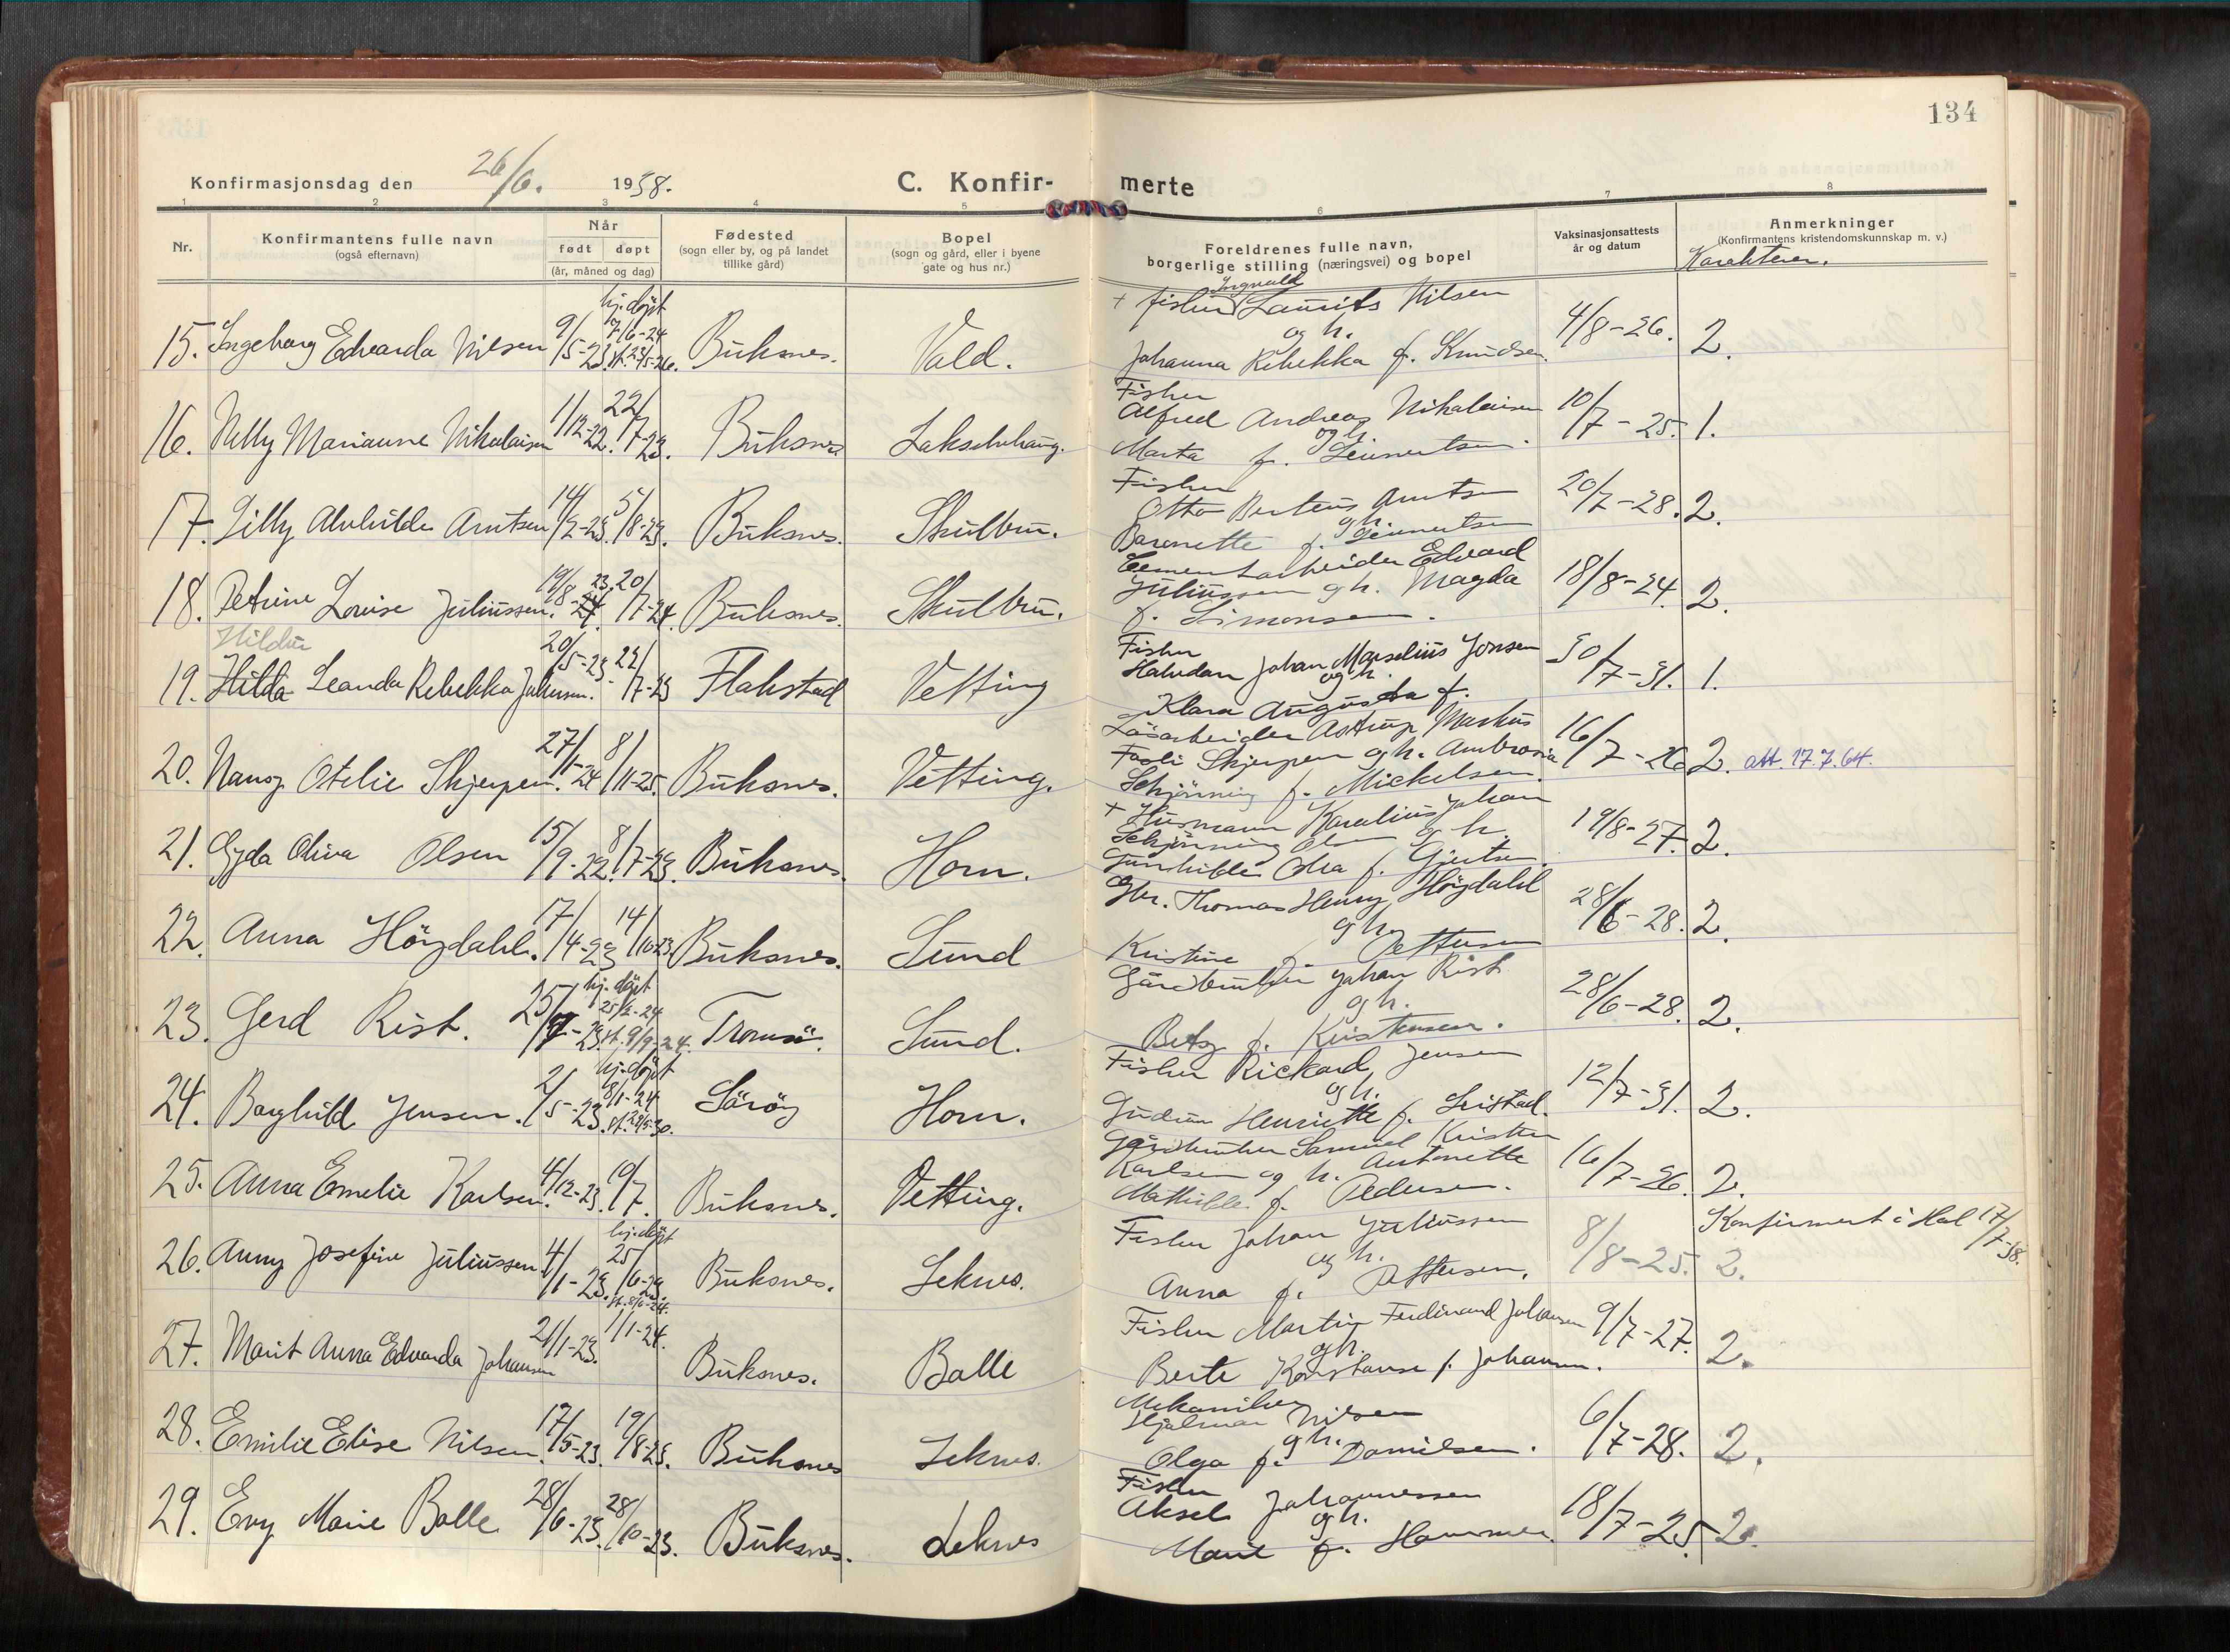 134
Konfirmasjonsdag den 26/6. 1938. C. Konfir- merte
1 2 3 4 5 6 7 8
Nr. Konfirmantens fulle navn (også efternavn) Når født døpt (år, måned og dag) Fødested (sogn eller by, og på landet tillike gård) Bopel (sogn og gård, eller i byene gate og hus nr.) Foreldrenes fulle navn, borgerlige stilling (næringsvei) og bopel Vaksinasjonsattests år og datum Anmerkninger (Konfirmantens kristendomskunnskap m. v.)
Karakterer.
15. Ingeborg Edvarda Nilsen 9/5-23. hj. døpt 7/6-24 st. 23/5-26. Buksnes. Vold. + fisker Ingvald Laurits Nilsen og h. Johanna Rebekka f. Knudsen. 4/8-26. 2.
16. Nelly Marianne Nikolaisen 1/12-22. 22/7-23. Buksnes Fisker Alfred Andreas Nikolaisen og h. Marta f. Leinertsen. 10/7-25. 1.
17. Lilly Alvhilde Arntsen 14/2-23. 5/8-23. Buksnes. Skulbru. Fisker Otto Berteus Arntsen og h. Baronette f. Leinertsen 20/7-28. 2.
18. Petrine Louise Juliussen. 19/8-24. 23. 20/7-24. Buksnes. Skulbru. Cementarbeider Edvard Juliussen og h. Magda f. Simonsen. 18/8-24. 2.
Hildur
19. Hilda Leanda Rebekka 20/5-23 22/7-23 Flakstad Vetting Fisker Halvdan Johan Marselius Jonsen og h. Klara Augusta f. 30/7-31. 1.
20. Nancy Otelie Skjerpen. 27/1-24 8/11-25. Buksnes. Vetting. Løsarbeider Astrup Markus Skjerpen og h. Ambrosia Schjönning f. Mickelsen. 16/7-26 2. att. 17.7.64.
21. Gyda Oliva Olsen 15/9-22. 8/7-23. Buksnes. Horn. + Husmann Karelius Johan Schjönning Olsen og h. Gunhilde f. Gjertsen. 19/8-27. 2.
22. Anna Höydahl. 17/4-23 14/10-23 Buksnes. Sund Gbr. Thomas Henry Höydahl og h. Kristine f. Pettersen 28/6-28. 2.
23. Gerd Rist. 25/7-23. hj. døpt 25/2-24 st. 9/9-24. Tromsö. Sund. Gårdbruker Johan Rist og h. Betzy f. Kristensen. 28/6-28. 2.
24. Borghild Jensen. 2/5-23. hj. døpt 8/1-24 Söröy Horn. Fisker Rickard Jensen og h. Gudrun Henriette f. 12/7-31. 2.
25. Anna Emelie Karlsen. 4/12-23. 19/7. Buksnes. Vetting. Gårdbruker Samuel Kristian Karlsen og h. Antonette Mathilde f. Pedersen. 16/7-26. 2.
26. Anny Josefine Juliussen 4/1-23. hj. døpt 25/6-23. st. 8/6-24. Buksnes. Leknes. Fisker Johan Juliussen og h. Anna f. Pettersen. 8/8-25. 2. Konfirmert i Hol 17/7-38.
27. Marit Anna Edvarda Johansen 21/1-23. 1/1-24. Buksnes. Balle Fisker Martin Ferdinand Johansen og h. Berte Konstanse f. Johansen. 9/7-27. 2.
28. Emilie Elise Nilsen. 17/5-23. 19/8-23. Buksnes Leknes. Mekaniker Hjalmar Nilsen og h. Olga f. Danielsen. 6/7-28. 2.
29. Evy Marie Balle 28/6-23. 28/10-23. Buksnes. Leknes Fisker Aksel Johannessen og h. Marie f. Hammer. 18/7-25. 2.